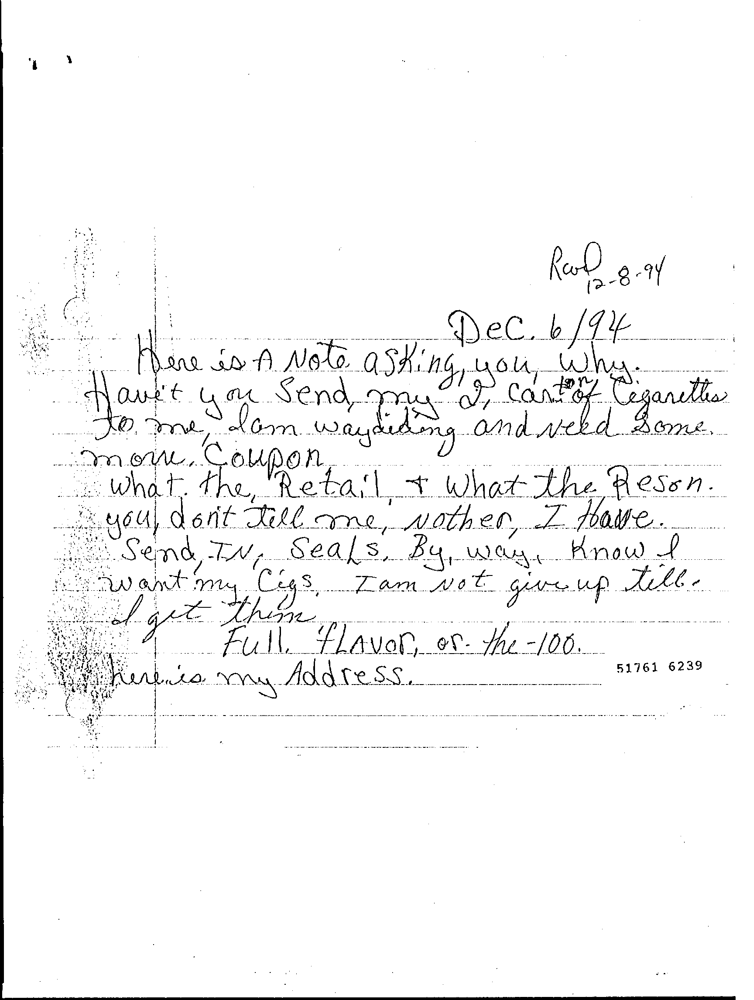 Rcvd
12-8-94
Dec. 6/94
Here is A Note asking, you, why.
Have't you Send, my 2, carton of Cegarettes
to me, I am waydiding and Need Some.
more. Coupon
what. the, Retail, + what the, Reson.
you, don't tell me, Nother, I Have.
Send, IN, Seals. By, way, Know I
want my Cigs. I am Not give up till.
I get them
Full. fLavor, or. the -100.
here is my Address.
51761 6239